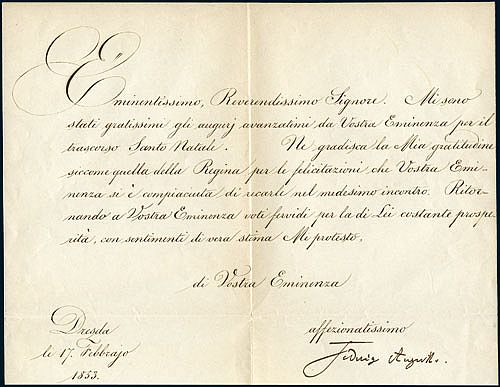 Eminentissimo, Reverendissimo Signore. Mi sono
stati gratissimi gli augurj avanzatimi da Vostra Eminenza per il
trascorso Santo Natale. Ne gradisca la Mia gratitudine
siccome quella della Regina per le felicitazioni che Vostra Emi-
nenza si è compiaciuta di recarle nel medesimo incontro. Ritor-
nando a Vostra Eminenza voti fervidi per la di Lei costante prospe-
rità, con sentimenti di vera stima Mi protesto,
di Vostra Eminenza
Dresda
li 17. Febbrajo
1853.
affezionatissimo